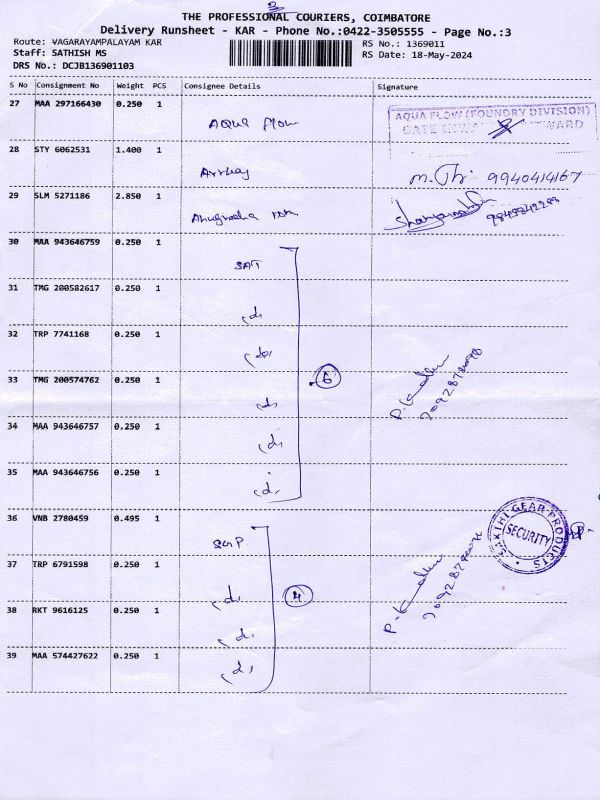 3
THE PROFESSIONAL COURIERS, COIMBATORE
Delivery Runsheet - KAR - Phone No.:0422-3505555 - Page No.:3
Route: VAGARAYAMPALAYAM KAR
RS No.: 1369011
Staff: SATHISH MS
RS Date: 18-May-2024
DRS No.: DCJB136901103
S No Consignment No Weight PCS Consignee Details Signature
27 MAA 297166430 0.250 1 Aqua flow AQUA FLOW (FOUNDRY DIVISION)
28 STY 6062531 1.400 1 9940414167
29 SLM 5271186 2.850 1
30 MAA 943646759 0.250 1 SAT
31 TMG 200582617 0.250 1 (do
32 TRP 7741168 0.250 1
33 TMG 200574762 0.250 1 (do 6
34 MAA 943646757 0.250 1 (do
35 MAA 943646756 0.250 1 (do
36 VNB 2780459 0.495 1 SGP SAKTHI GEAR PRODUCTS SECURITY
37 TRP 6791598 0.250 1 (do
38 RKT 9616125 0.250 1 (do 4
39 MAA 574427622 0.250 1 (do